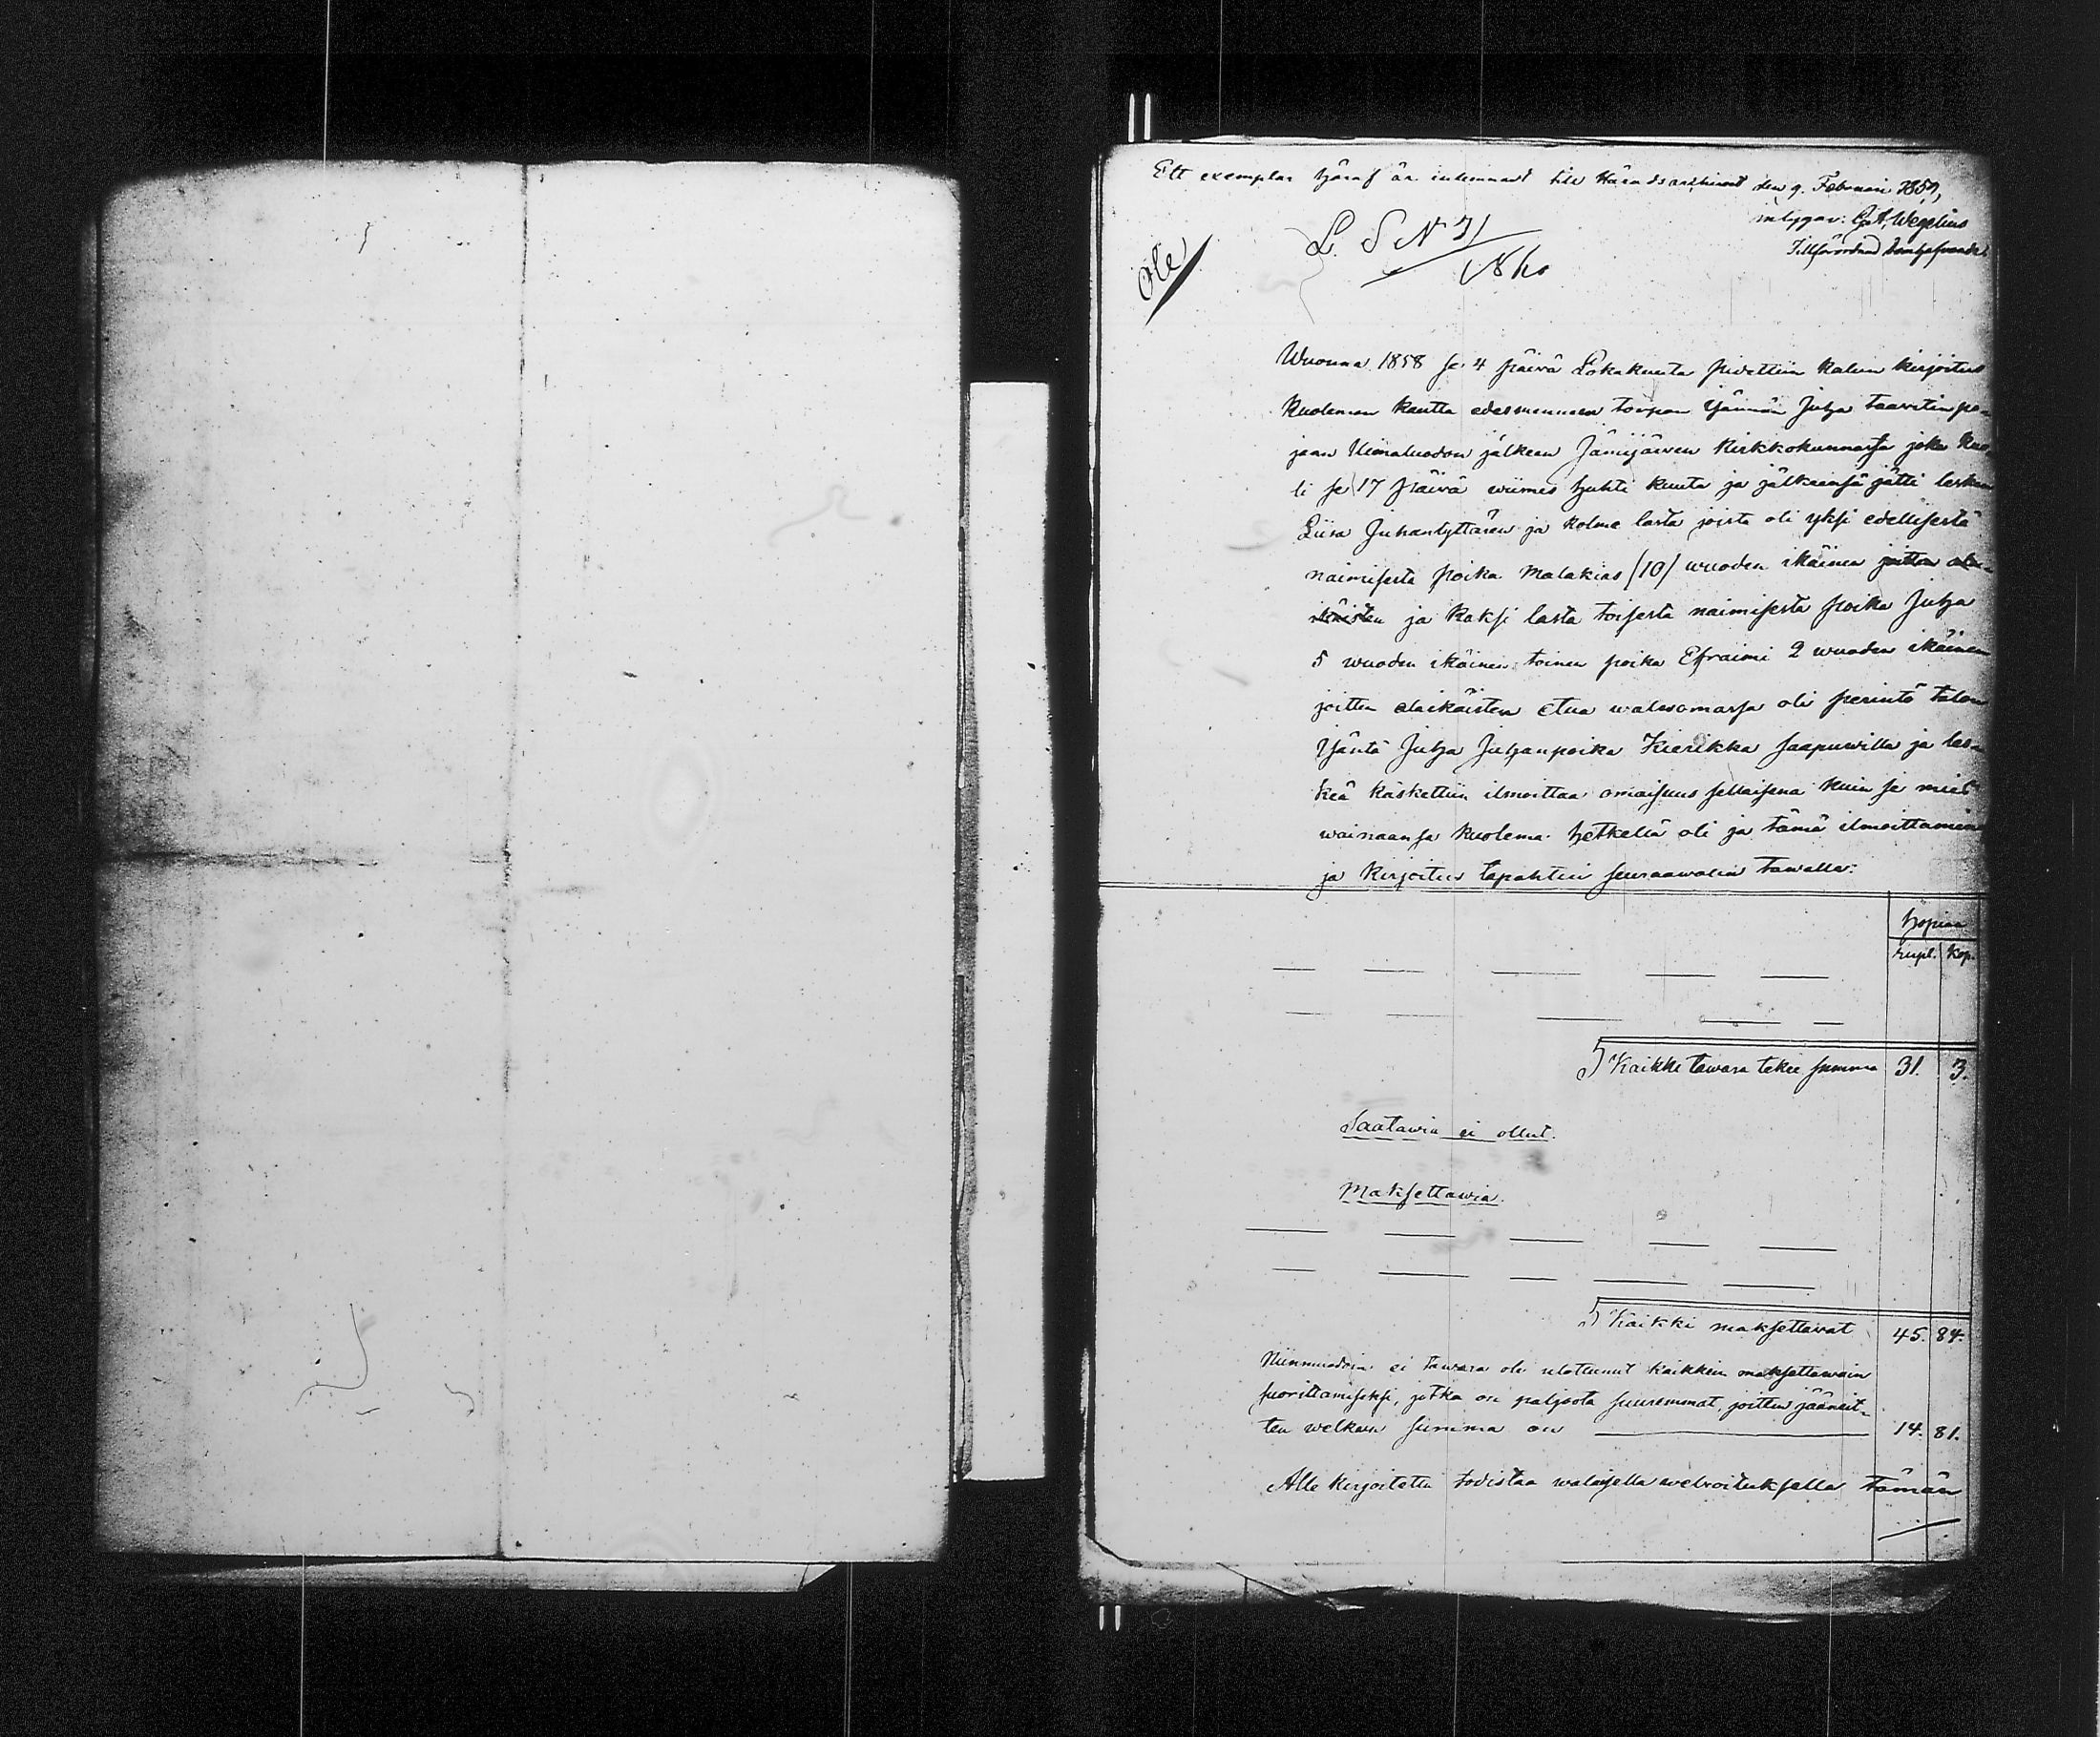 Ett exemplar häraf är inlemnadt till Häradsarkivet den 9. Februari 1859,
intygar: G. A. Wegelius
Tillförordnad Domhafvande
L. S N 31
Wuonna 1858 se 4 päivä Lokakuuta pidettiin kalun kirjoitus
kuoleman kautta edesmennen torpan Yännän Juha Taavetinpo-
jaan Uimaluodon jälkeen Jämijärven kirkkokunnassa joka kuo-
li se 17 päivä viimes huhti kuuta ja jälkeensä jätti lesken
Liisa Juhantyttären ja kolme lasta joista oli yksi edellisestä
naimisesta poika Malakias /10/ wuoden ikäinen joitten ala-
ikäisten ja kaksi lasta toisesta naimisesta poika Juha
5 wuoden ikäinen toinen poika Efraimi 2 wuoden ikäinen
joitten alaikäisten etua walwomassa oli perintö talon
Yäntä Juha Juhanpoika Kierikka saapuwilla ja les-
keä käskettiin ilmoittaa omaisuus sellaisena kuin se mies
wainaansa kuolema hetkellä oli ja tämä ilmoittaminen
ja kirjoitus tapahtui seuraawalla tawalla:
hopiaa
rupl. kop.
Kaikki tawara tekee summa 31. 3.
Saatawia ei ollut.
Maksettawia.
Kaikki maksettawat 45. 84.
Niinmuodoin ei tawara ole ulottunut kaikkein maksettawain
suorittamiseksi, jotka on paljoota suuremmat, joitten jääneit-
ten welkain summa on 14. 81.
Alle kirjoitettu todistaa walaisella welwoituksella tämän